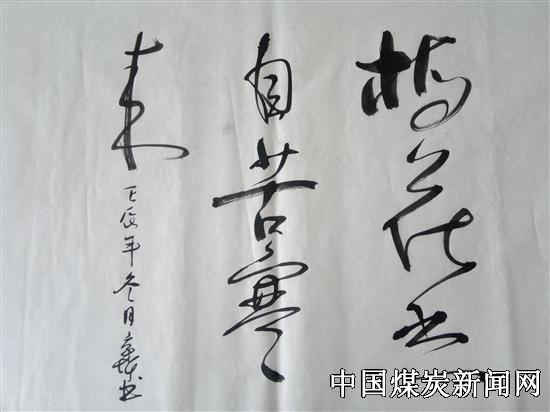 梅花
自苦寒
来
壬辰年冬月
书
中国煤炭新闻网